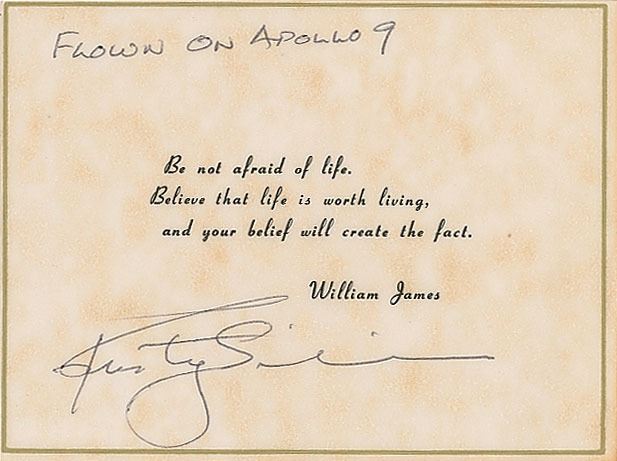 FLOWN ON APOLLO 9
Be not afraid of life.
Believe that life is worth living,
and your belief will create the fact.
William James
Rusty Schweickart